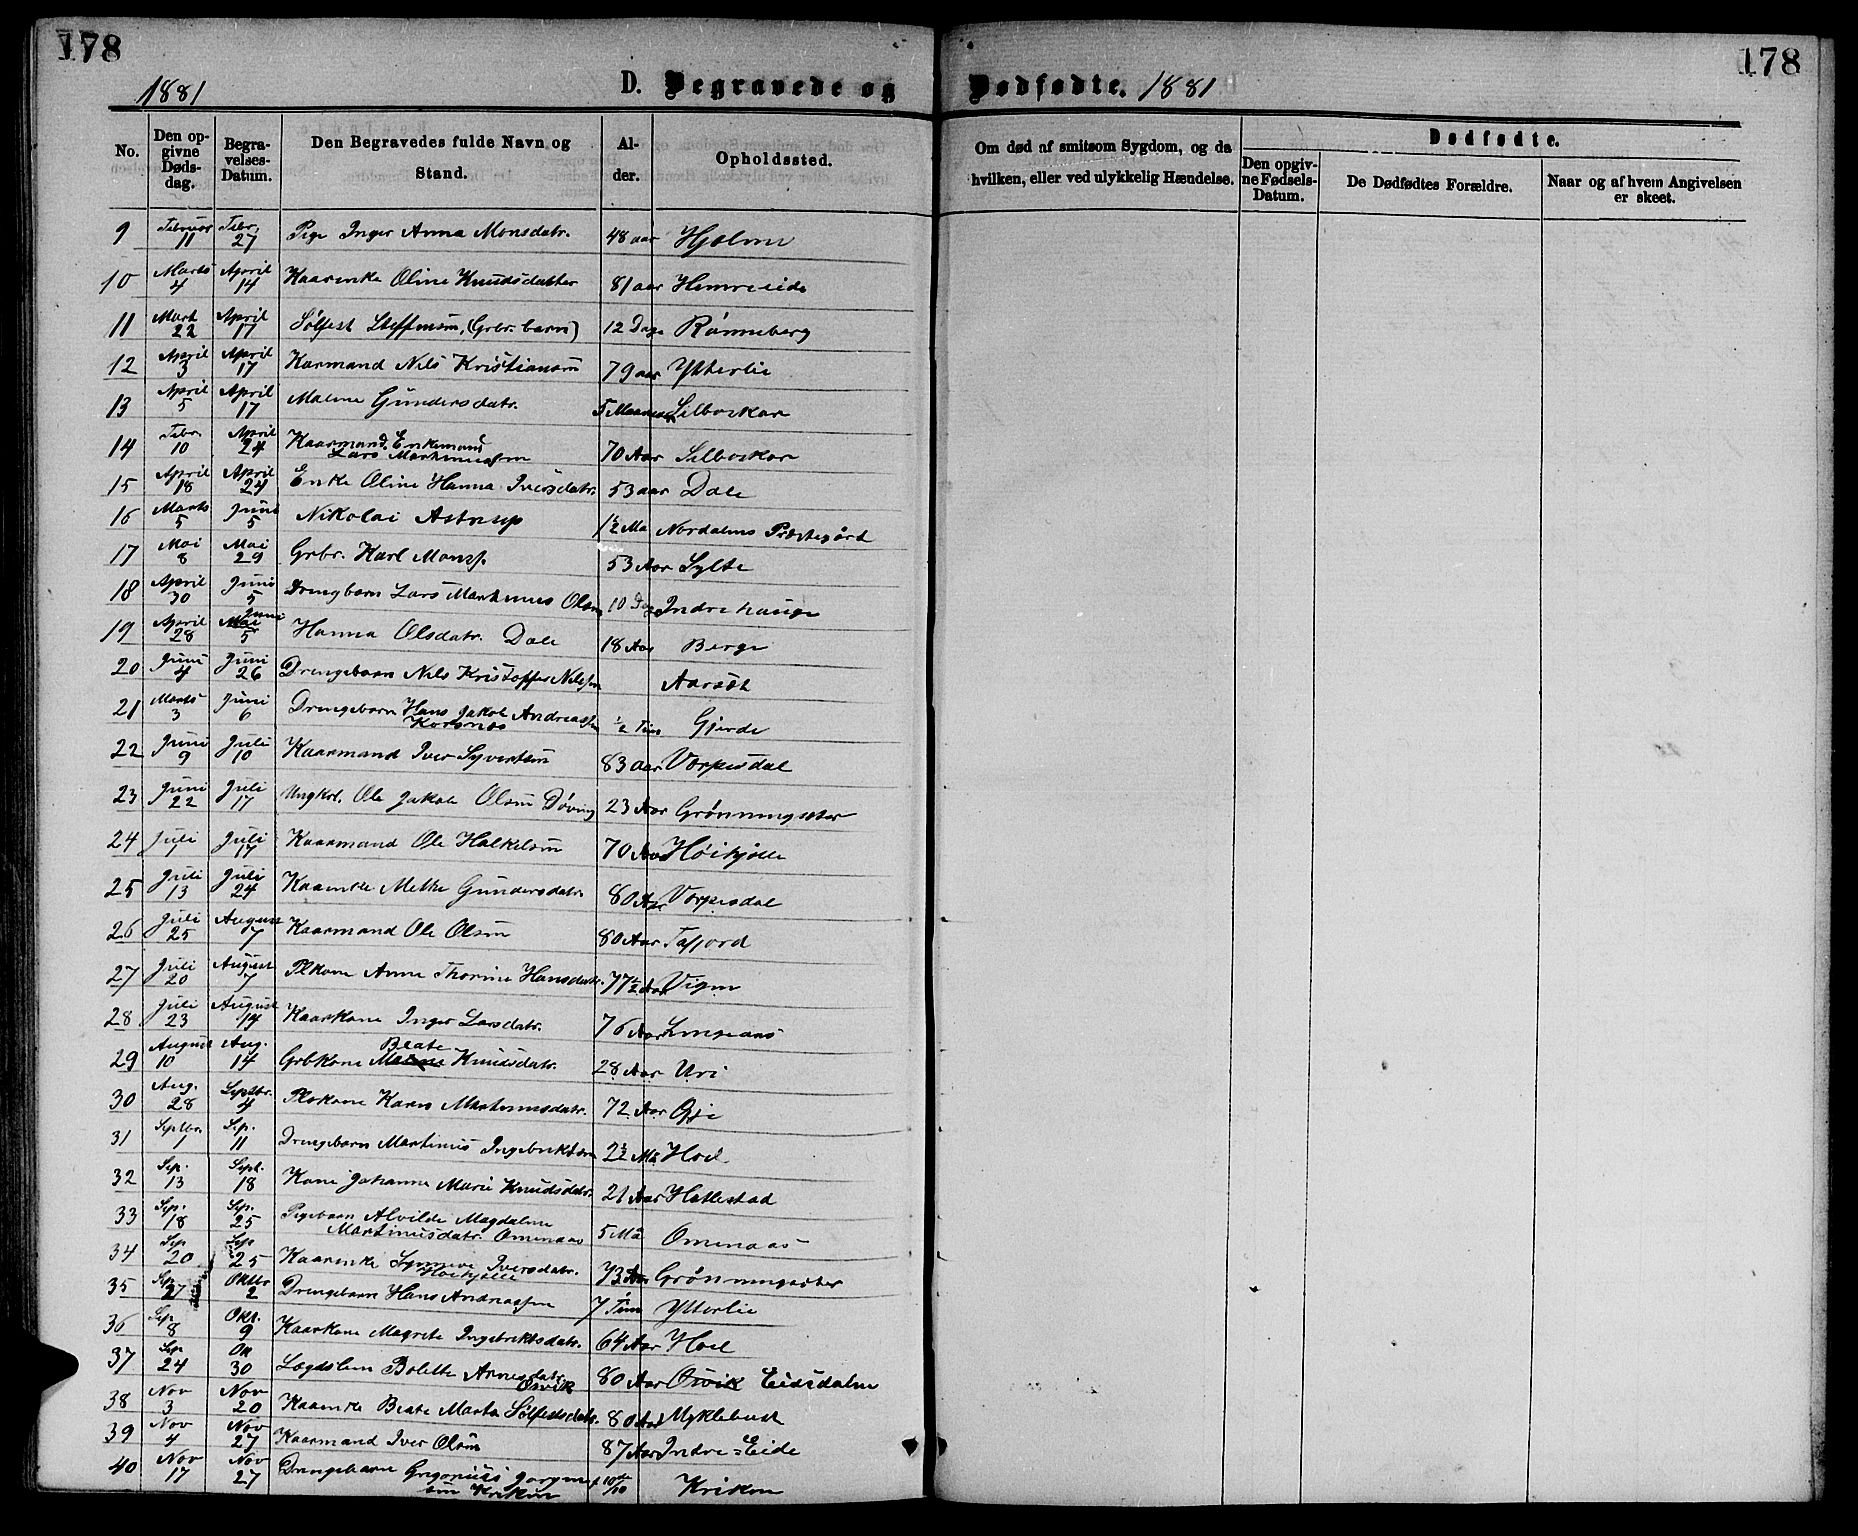 178
178
1881
D. Begravede og Dødfødte. 1881
No. | Den opgivne Dødsdag. | Begravelses-Datum. | Den Begravedes fulde Navn og Stand. | Alder. | Opholdssted. | Om død af smitsom Sygdom, og da hvilken, eller ved ulykkelig Hændelse. | Dødfødte. | Den opgivne Fødsels-Datum. | De Dødfødtes Forældre. | Naar og af hvem Angivelsen er skeet.
9 Februar 11 Febr. 27 Pige Inger Anna Monsdatr. 48 aar Hjelme
10 Marts 4 April 14 Kaarenke Oline Knudsdatter 81 aar Hemreeide
11 Mart 22 April 17 Sølfest Steffensøn, (Grbr. barn) 12 Dage Rønneberg
12 April 3 April 17 Karmand Nils Kristiansøn 79 aar Ytterlie
13 April 5 April 17 Malene Gundersdatr. 5 Maaneder Selboskar
14 Febr. 10 April 24 Kaarmand. Enkemand Lars Martinussøn 70 Aar Selboskar
15 April 18 April 24 Enke Oline Hanna Iversdatr. 53 aar Dale
16 Marts 5 Juni 5 Nikolai Astrup 1½ Ma Nordalens Præstegård
17 Mai 8 Mai 29 Grbr. Karl Monss. 53 Aar Sylte
18 April 30 Juni 5 Drengbarn Lars Martinus Olsen 10 Dag Indrehauge
19 April 28 Juni 5 Hanna Olsdatr. Dale 18 Aar Berge
20 Juni 4 Juni 26 Drengebarn Nils Kristoffer Nilssøn Aarsæt
21 Marts 3 Juni 6 Drengebarn Hans Jakob Andreassøn Korsnæs ½ Time Gjerde
22 Juni 9 Juli 10 Kaarmand Iver Syvertsøn 83 aar Værpesdal
23 Juni 22 Juli 17 Ungkrl. Ole Jakob Olsøn Døving 23 Aar Grønningsæter
24 Juli 1 Juli 17 Kaarmand Ole Halkelsøn 70 Aar Høikjølle
25 Juli 13 Juli 24 Kaarenke Mette Gundersdatr. 80 Aar Værpesdal
26 Juli 25 August 7 Kaarmand Ole Olsøn 80 Aar Tafjord
27 Juli 20 August 7 Plkone Anne Thorine Hansdatr. 77½ Aar Vigen
28 Juli 23 August 14 Kaarkone Inger Larsdatr. 76 Aar Lingeaas
29 August 10 Aug. 14 Grbkone Beate Knudsdatr. 28 Aar Uri
30 Aug. 28 Septbr. 4 Plskone Karen Martinusdatr. 72 Aar Gje
31 Septbr. 1 Sep. 11 Drengebarn Martinus Ingebriktsøn 2½ Må Hoel
32 Sep. 13 Sept. 18 Kone Johanne Marie Knudsdatr. 21 Aar Hatlestad
33 Sep. 18 Sep. 25 Pigebarn Alvilde Magdalene Martinusdatr. Omenaas 5 Må Omenaas
34 Sep 20 Sep 25 Kaarenke Synneve Iversdatr. Høikjølle 73 Aar Grønningsæter
35 Sep 27 Oktbr 2 Drengebarn Hans Andreassøn 7 Tim Ytterlie
36 Sep 8 Okt. 9 Kaarkone Magrete Ingebriktsdatr. 64 Aar Hoel
37 Sep 24 Ok 30 Lægdslem Bolette Arnesdatr. Osvik 80 Aar Osvik Eidsdalen
38 Nov 3 Nov 20 Kaarenke Beate Marta Sølfestsdatr. 80 Aar Myklebust
39 Nov 4 Nov 27 Kaarmand Iver Olsøn 87 Aar Indre=Eide
40 Nov 17 Nov 27 Drengebarn Gregorius Jørgensøn Kriken 10/10 Kriken